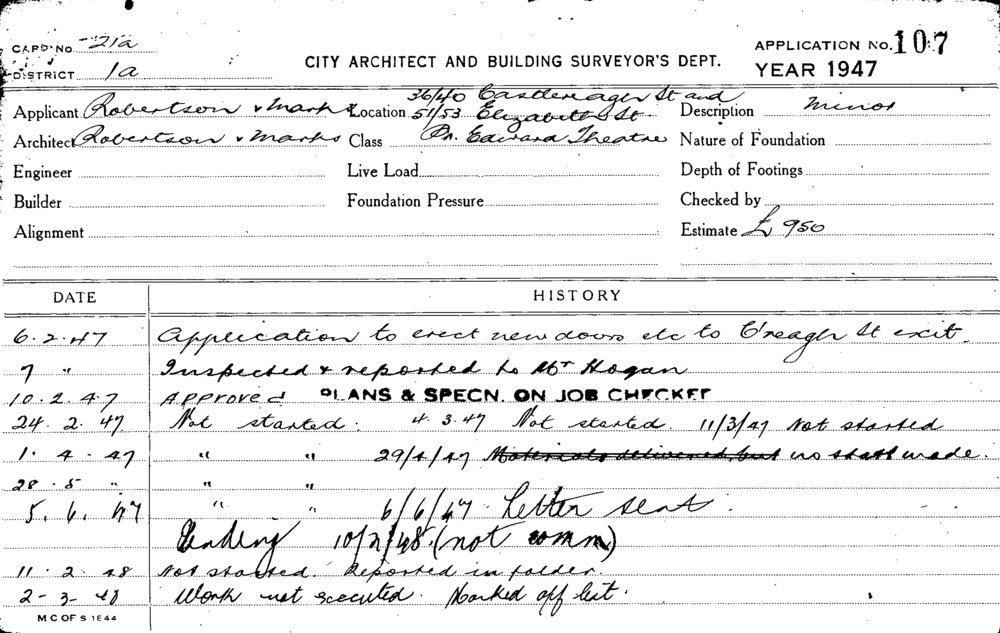 CARD NO. 21a
DISTRICT 1a
CITY ARCHITECT AND BUILDING SURVEYOR'S DEPT.
APPLICATION NO. 107
YEAR 1947
Applicant Robertson & Marks Location 36/40 Castlereagh St and 51/53 Elizabeth St. Description Minor
Architect Robertson & Marks Class Pr. Edward Theatre Nature of Foundation
Engineer Live Load Depth of Footings
Builder Foundation Pressure Checked by
Alignment Estimate £ 950
DATE HISTORY
6.2.47 Application to erect new doors etc to C'reagh St exit.
7 " Inspected & reported to Mr Hogan
10.2.47 Approved PLANS & SPECN. ON JOB CHECKED
24.2.47 Not started. 4.3.47 Not started. 11/3/47 Not started
1.4.47 " " 29/4/47 Materials delivered but no start made.
28.5 " " "
5.6.47 " " 6/6/47 Letter sent.
Pending 10/2/48. (not comm)
11.2.48 Not started. Reported in folder.
2-3-48 Work not executed. Marked off list.
M C OF S 1844